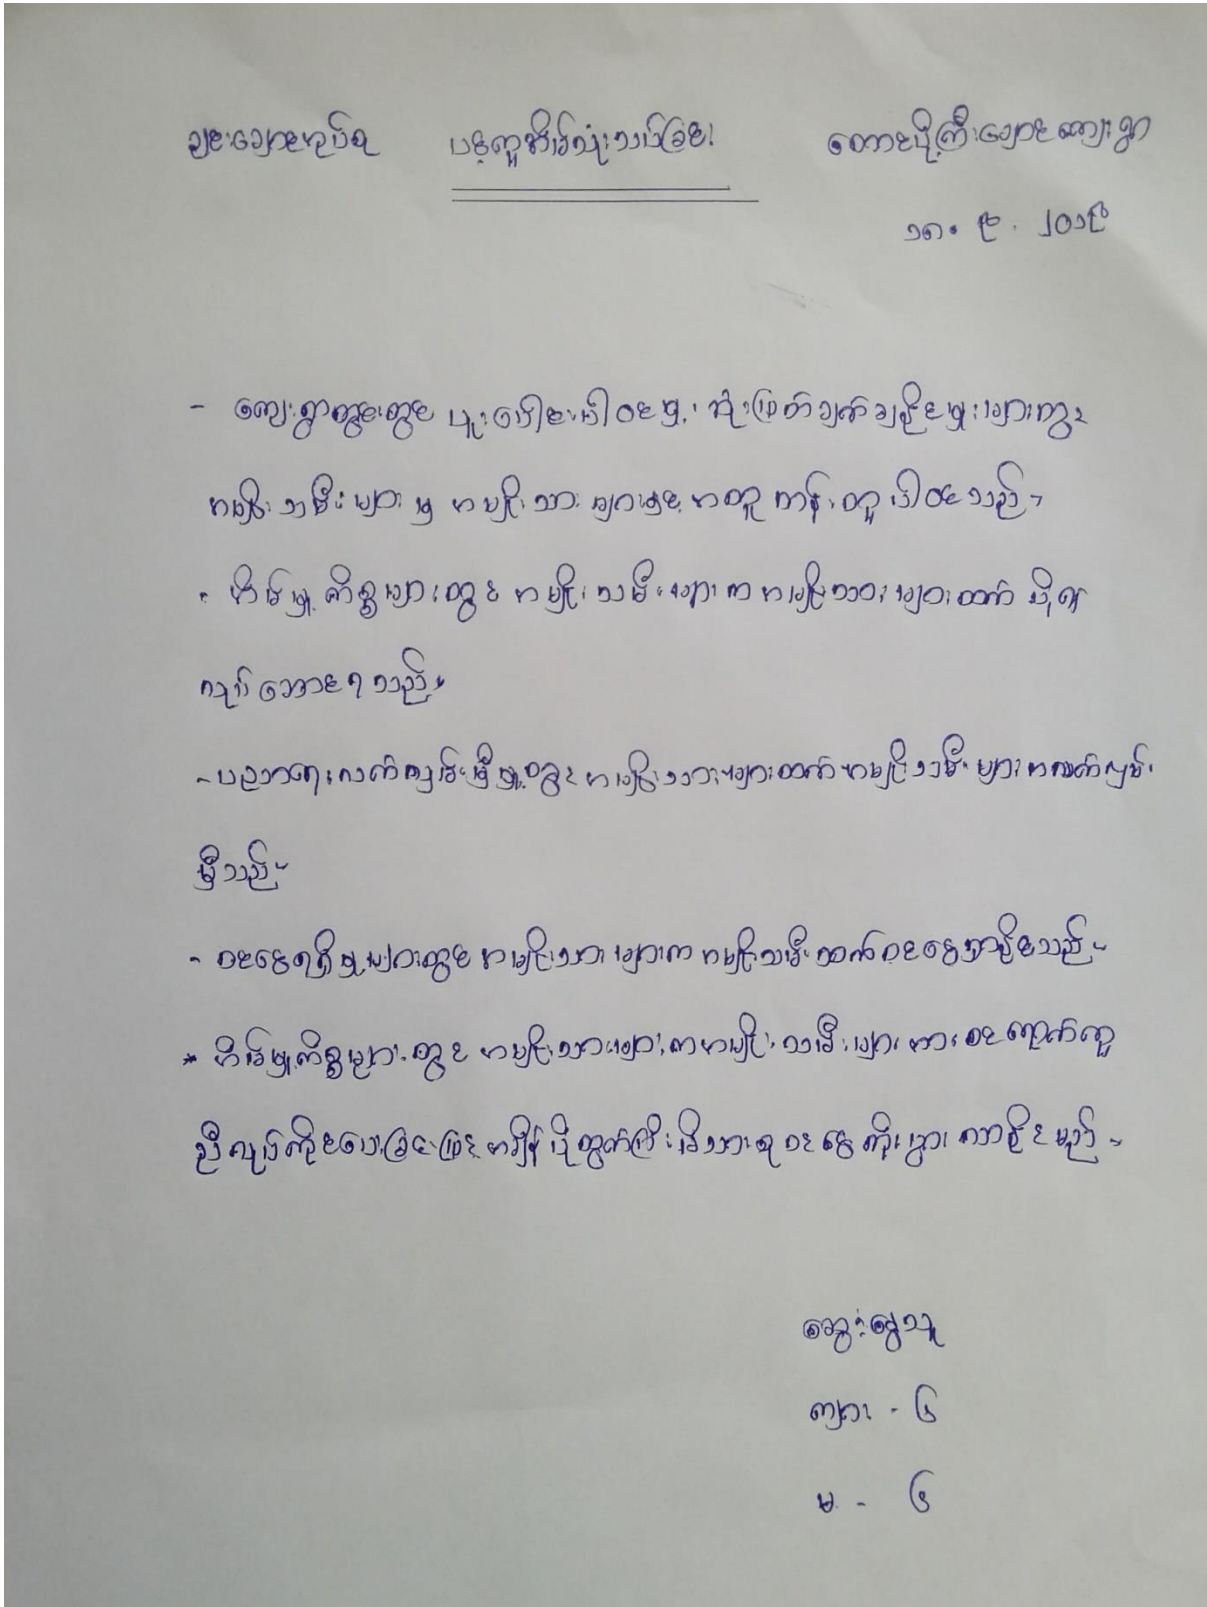 ချင်းချောင်းအုပ်စု ပင့်ကူအိမ်သုံးသပ်ခြင်း တောင်ပို့ကြီးချောင်ကျေးရွာ
၁၈.၉.၂၀၁၉
- ကျေးရွာတွင်းတွင် ပူးပေါင်းပါဝင်မှု၊ ဆုံးဖြတ်ချက်ချနိုင်မှုများတွင်
အမျိုးသမီးများမှ အမျိုးသားများနှင့် အတူတန်းတူပါဝင်သည်။
- အိမ်မှုကိစ္စများတွင် အမျိုးသမီးများက အမျိုးသားများထက် ပို၍
လုပ်ဆောင်ရသည်။
- ပညာရေးလက်လှမ်းမှီမှုတွင် အမျိုးသားများထက် အမျိုးသမီးများ ကလက်လှမ်း
မှီသည်။
- ဝင်ငွေရရှိမှုများတွင် အမျိုးသားများက အမျိုးသမီးထက်ဝင်ငွေရှာနိုင်သည်။
* အိမ်မှုကိစ္စများတွင် အမျိုးသားများက အမျိုးသမီးများအား ဝင်ရောက်ကူ
ညီလုပ်ကိုင်ပေးခြင်းဖြင့် အချိန်ပိုထွက်ကြီးမိသားစုဝင်ငွေတိုးပွားလာနိုင်မည်။
ဆွေးနွေးသူ
ကျား - ၆
မ - ၆